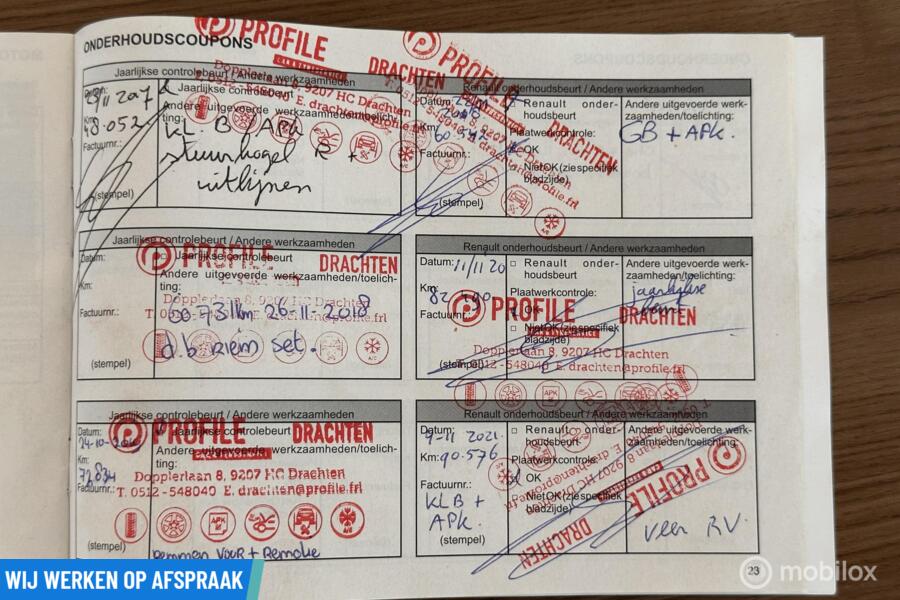 ONDERHOUDSCOUPONS
Jaarlijkse controlebeurt / Andere werkzaamheden
Datum:
Km:
48.052
Factuurnr.:
(stempel)
Jaarlijkse controlebeurt
Andere uitgevoerde werkzaamheden/toelich-
ting:
KL. B / APK
stuurkogel R +
uitlijnen
PROFILE
DRACHTEN
Dopplerlaan 8, 9207 HC Drachten
E. drachten@profile.frl
Renault onderhoudsbeurt / Andere werkzaamheden
Datum:
Km:
Factuurnr.:
(stempel)
Renault onder-
houdsbeurt
Plaatwerkcontrole:
OK
Niet OK (zie specifiek
bladzijde)
Andere uitgevoerde werk-
zaamheden/toelichting:
GB + APK.
PROFILE
DRACHTEN
Jaarlijkse controlebeurt / Andere werkzaamheden
Datum:
Km:
Factuurnr.:
(stempel)
Jaarlijkse controlebeurt
Andere uitgevoerde werkzaamheden/toelich-
ting:
60.731km 26-11-2018
d.b riem set.
PROFILE
DRACHTEN
Dopplerlaan 8, 9207 HC Drachten
Renault onderhoudsbeurt / Andere werkzaamheden
Datum: 11/11'20
Km:
Factuurnr.:
(stempel)
Renault onder-
houdsbeurt
Plaatwerkcontrole:
OK
Niet OK (zie specifiek
bladzijde)
Andere uitgevoerde werk-
zaamheden/toelichting:
jaarlijkse
beurt
PROFILE
DRACHTEN
Dopplerlaan 8, 9207 HC Drachten
T. 0512 - 548040 E. drachten@profile.frl
Jaarlijkse controlebeurt / Andere werkzaamheden
Datum:
Km:
72.834
Factuurnr.:
(stempel)
Jaarlijkse controlebeurt
Andere uitgevoerde werkzaamheden/toelich-
ting:
PROFILE
DRACHTEN
Dopplerlaan 8, 9207 HC Drachten
T. 0512 - 548040 E. drachten@profile.frl
APK
A/C
remmen VOOR + Remolie
Renault onderhoudsbeurt / Andere werkzaamheden
Datum:
9-11 2021.
Km: 90.576
Factuurnr.:
KLB +
APK.
(stempel)
Renault onder-
houdsbeurt
Plaatwerkcontrole:
OK
Niet OK (zie specifiek
bladzijde)
Andere uitgevoerde werk-
zaamheden/toelichting:
veer RV.
PROFILE
DRACHTEN
23
WIJ WERKEN OP AFSPRAAK
mobilox